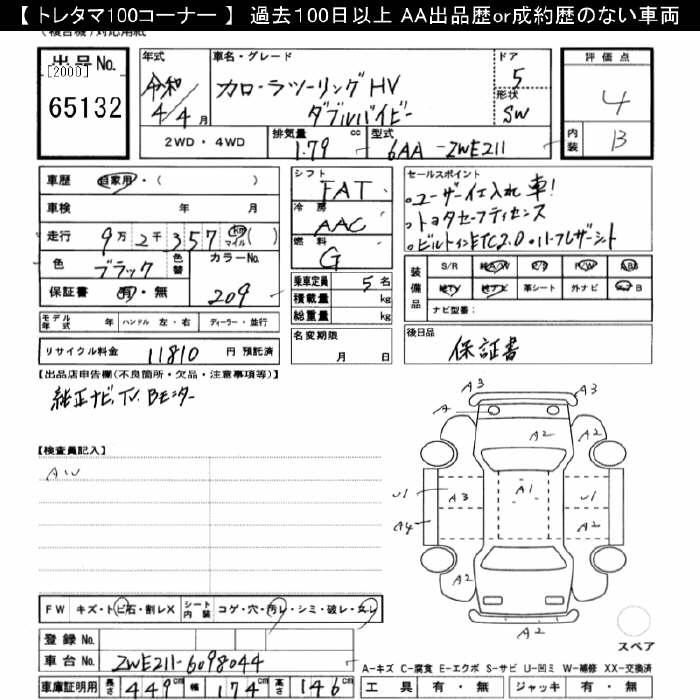 【 トレタマ100コーナー 】 過去100日以上 AA出品歴or成約歴のない車両
出品No.
[2000]
65132
年式
令和
4/4月
車名・グレード
カローラツーリングHV
ダブルバイビー
ドア
5
形状
SW
評価点
4
内装
B
2WD・4WD
排気量 cc
1.79
型式
6AA-ZWE211
車歴 自家用・( )
車検 年 月
走行 9万2千357 km マイル ( )
色 ブラック 色替
カラーNo.
209
保証書 有・無
シフト
FAT
冷房
AAC
燃料
G
乗車定員 5名
積載量 kg
総重量 kg
セールスポイント
。ユーザー仕入れ車!
。トヨタセーフティセンス
。ビルトインETC2.0 。ハーフレザーシート
装備品
S/R 純A/W P/S P/W AB
純TV 純ナビ 革シート 外ナビ B
ナビ型番:
モデル年式 年 ハンドル 左・右 ディーラー・並行
名変期限
月 日
後日品
保証書
リサイクル料金 11810 円 預託済
【出品店申告欄(不良箇所・欠品・注意事項等)】
純正ナビ、TV、Bモニター
【検査員記入】
AW
A3
A3
A
A2
A2
U1
A3
A1
U1
A4
A2
A2
A2
A2
スペア
FW キズ・トビ石・割レX シート内装 コゲ・穴・汚レ・シミ・破レ・スレ
登録No.
車台No. ZWE211-6098044
A-キズ C-腐食 E-エクボ S-サビ U-凹ミ W-補修 XX-交換済
車庫証明用 長さ 449cm 幅 174cm 高さ 146cm
工具 有・無 ジャッキ 有・無